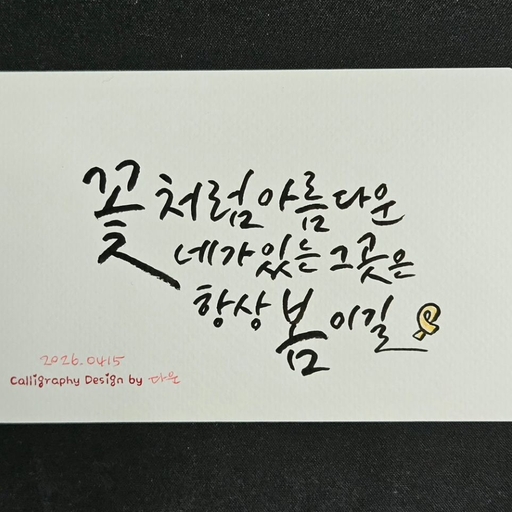 꽃처럼 아름다운
네가 있는 그곳은
항상 봄이길
2026.0415
Calligraphy Design by 다온